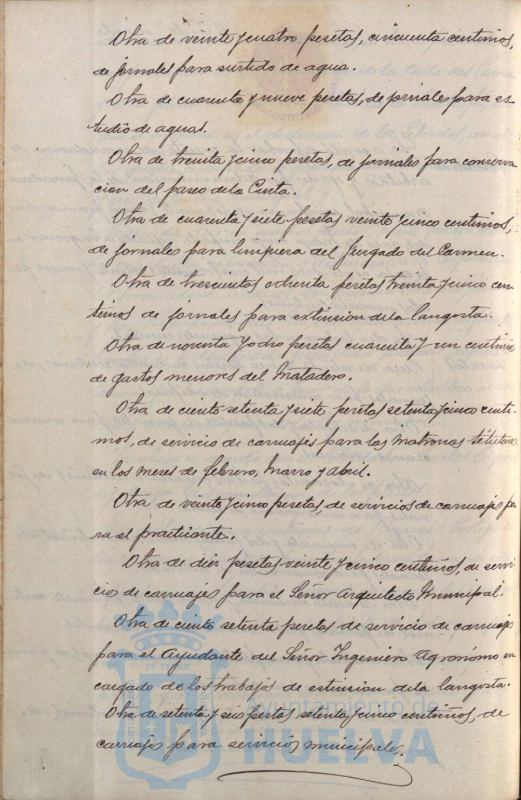 Otra de veinte y cuatro pesetas, cincuenta centimos,
de jornales para surtido de agua.
Otra de cuarenta y nueve pesetas, de jornales para es-
tudio de aguas.
Otra de treinta y cinco pesetas, de jornales para conserva-
cion del paseo de la Cinta.
Otra de cuarenta y siete pesetas veinte y cinco centimos,
de jornales para limpieza del Juzgado del Carmen.
Otra de trescientas ochenta pesetas treinta y cinco cen-
timos de jornales para extinsion de la langosta.
Otra de noventa y ocho pesetas cuarenta y un centimos
de gastos menores del Matadero.
Otra de ciento setenta y siete pesetas setenta y cinco centi-
mos, de servicio de carruajes para las matronas titulares
en los meses de febrero, Marzo y abril.
Otra de veinte y cinco pesetas, de servicios de carruajes pa-
ra el practicante.
Otra de diez pesetas veinte y cinco centimos, de servi-
cios de carruajes para el Señor Arquitecto Municipal.
Otra de ciento setenta pesetas de servicio de carruajes
para el Ayudante del Señor Ingeniero Agronómo en
cargado de los trabajos de estinsion de la langosta.
Otra de setenta y seis pesetas setenta y cinco centimos, de
carruajes para servicios municipales.
Ayuntamiento de
HUELVA